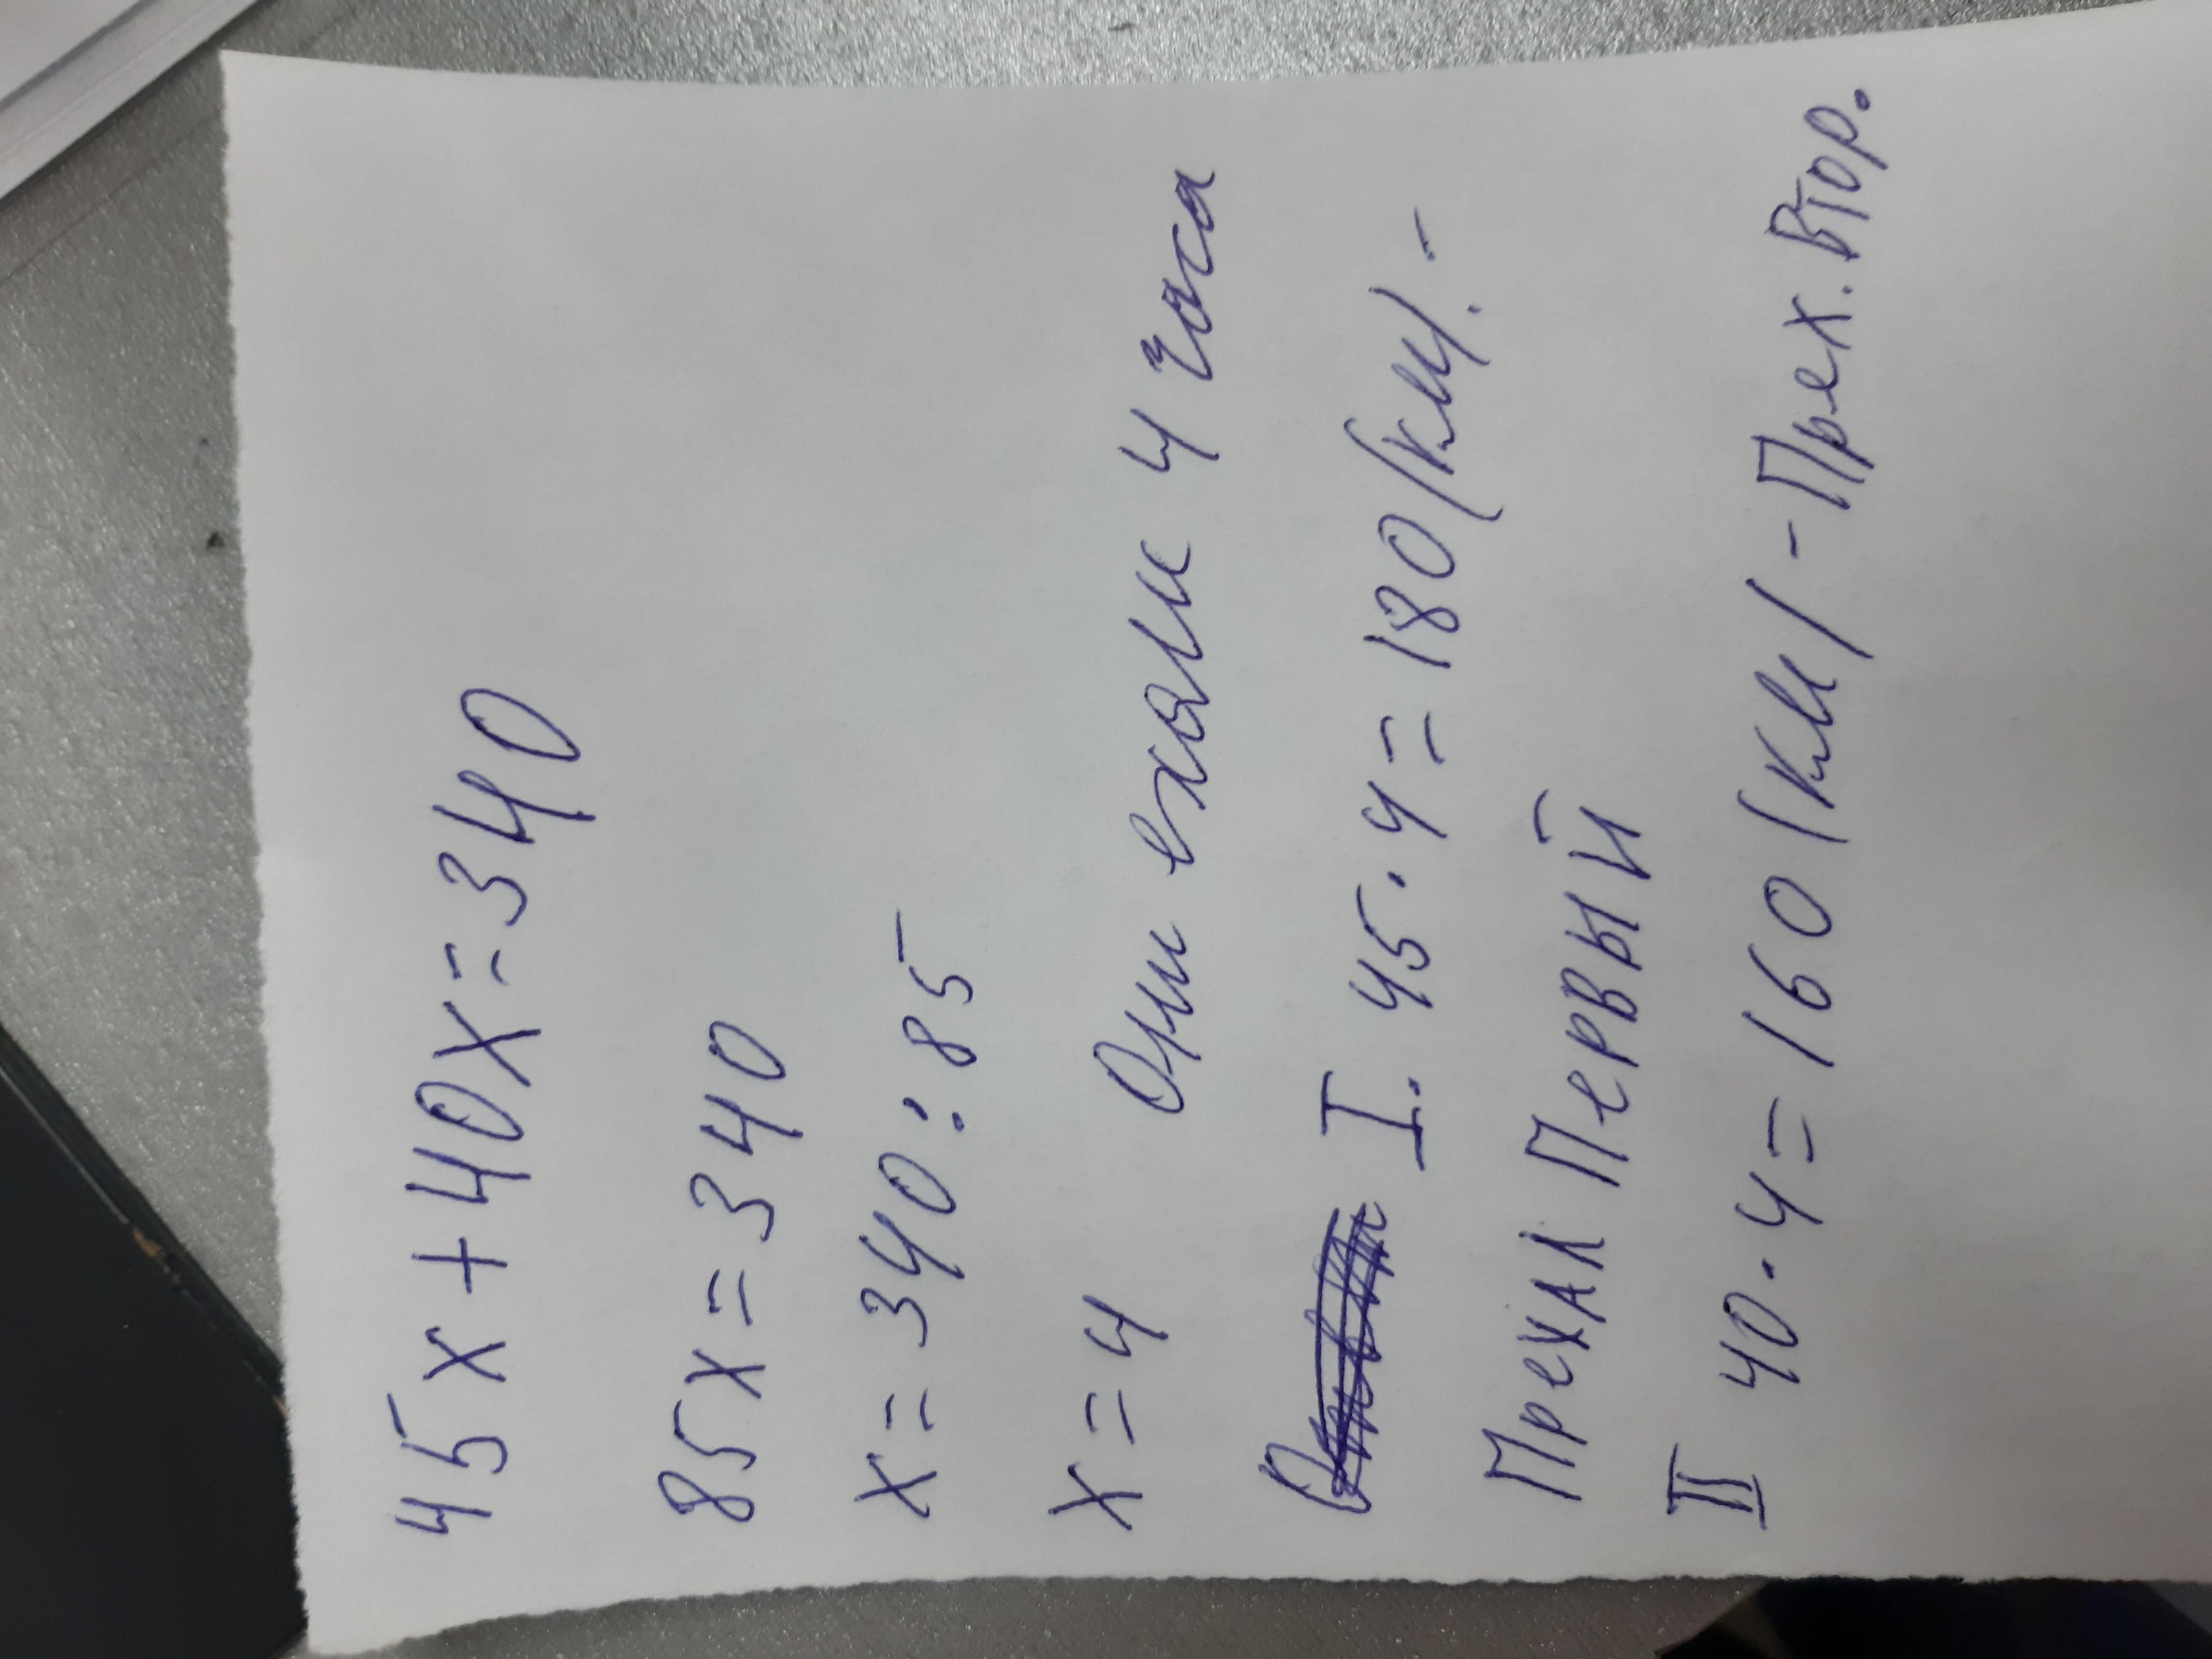 45x+40x=340
85x=340
x=340:85
x=4 Они ехали 4 часа
I. 45·4=180(км). -
Прехал Первый
II 40·4=160(км)-Прех.Втор.